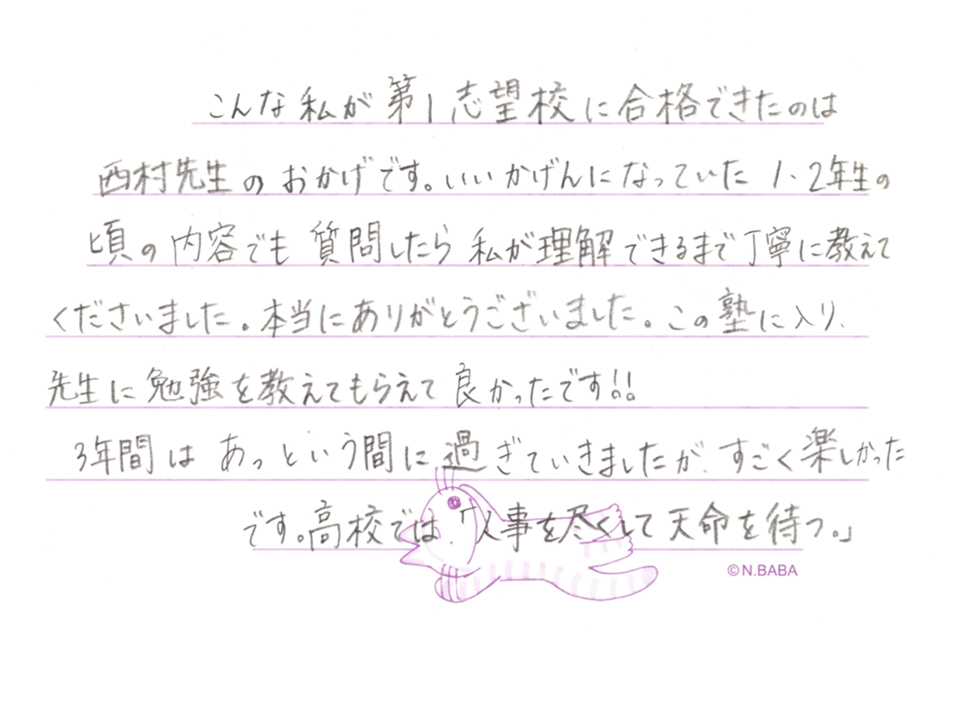 こんな私が第1志望校に合格できたのは
西村先生のおかげです。いいかげんになっていた1、2年生の
頃の内容でも質問したら私が理解できるまで丁寧に教えて
くださいました。本当にありがとうございました。この塾に入り、
先生に勉強を教えてもらえて良かったです!!
3年間はあっという間に過ぎていきましたが、すごく楽しかった
です。高校では、「人事を尽くして天命を待つ。」
©N.BABA